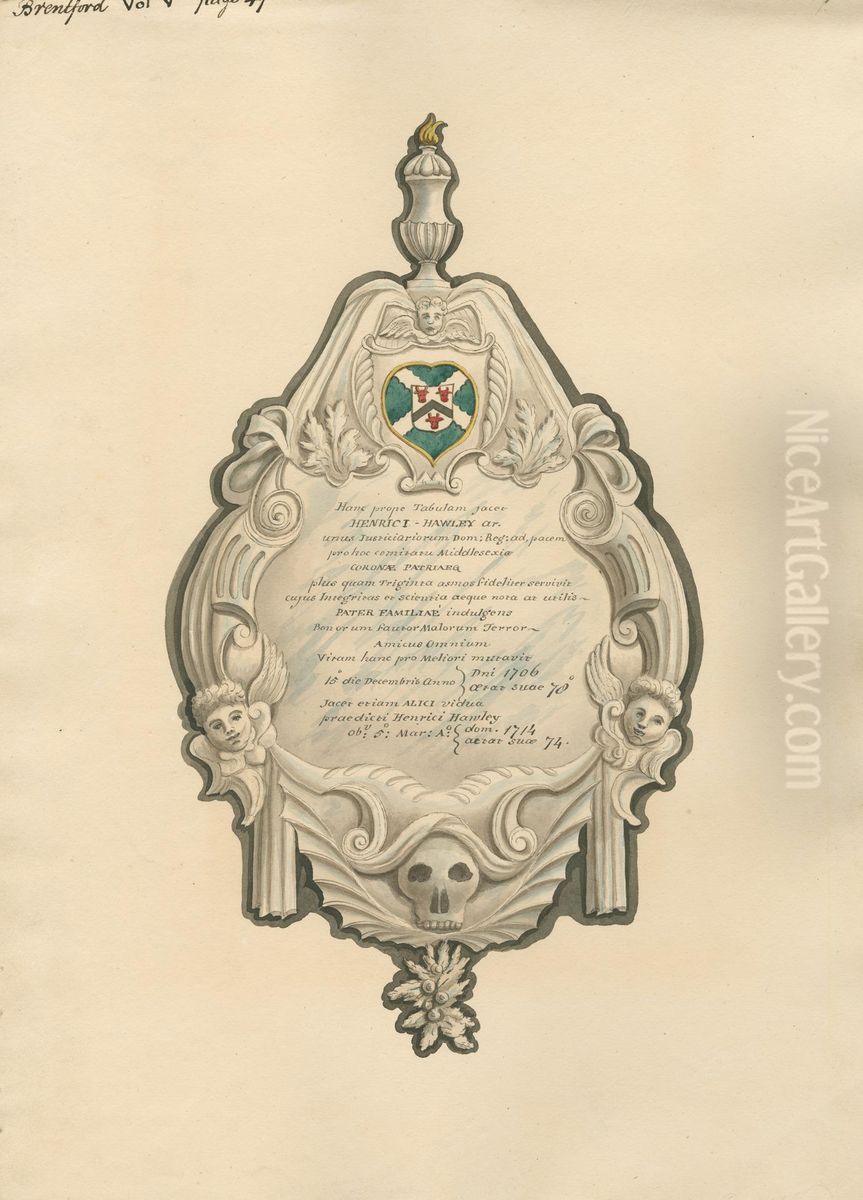 Brentford Vol V page 47
Hanc prope Tabulam jacet
HENRICI - HAWLEY ar.
unus Justiciariorum Dom; Reg; ad, pacem
pro hoc comitatu Middlesexiæ
CORONÆ PATRIAEQ
plus quam Triginta asmos fideliter servivit
cujus Integritas et scientia aeque nota at utilis
PATER FAMILIAE indulgens
Bonorum Fautor Malorum Terror
Amicus Omnium
Vitam hanc pro Meliori mutavit
15° die Decembris Anno { Dni 1706
ætat suae 78°
Jacet etiam ALICI vidua
praedicti Henrici Hawley
ob:ᵗ 5° Mar: A:° { dom. 1714
aetat suæ 74.
NiceArtGallery.com